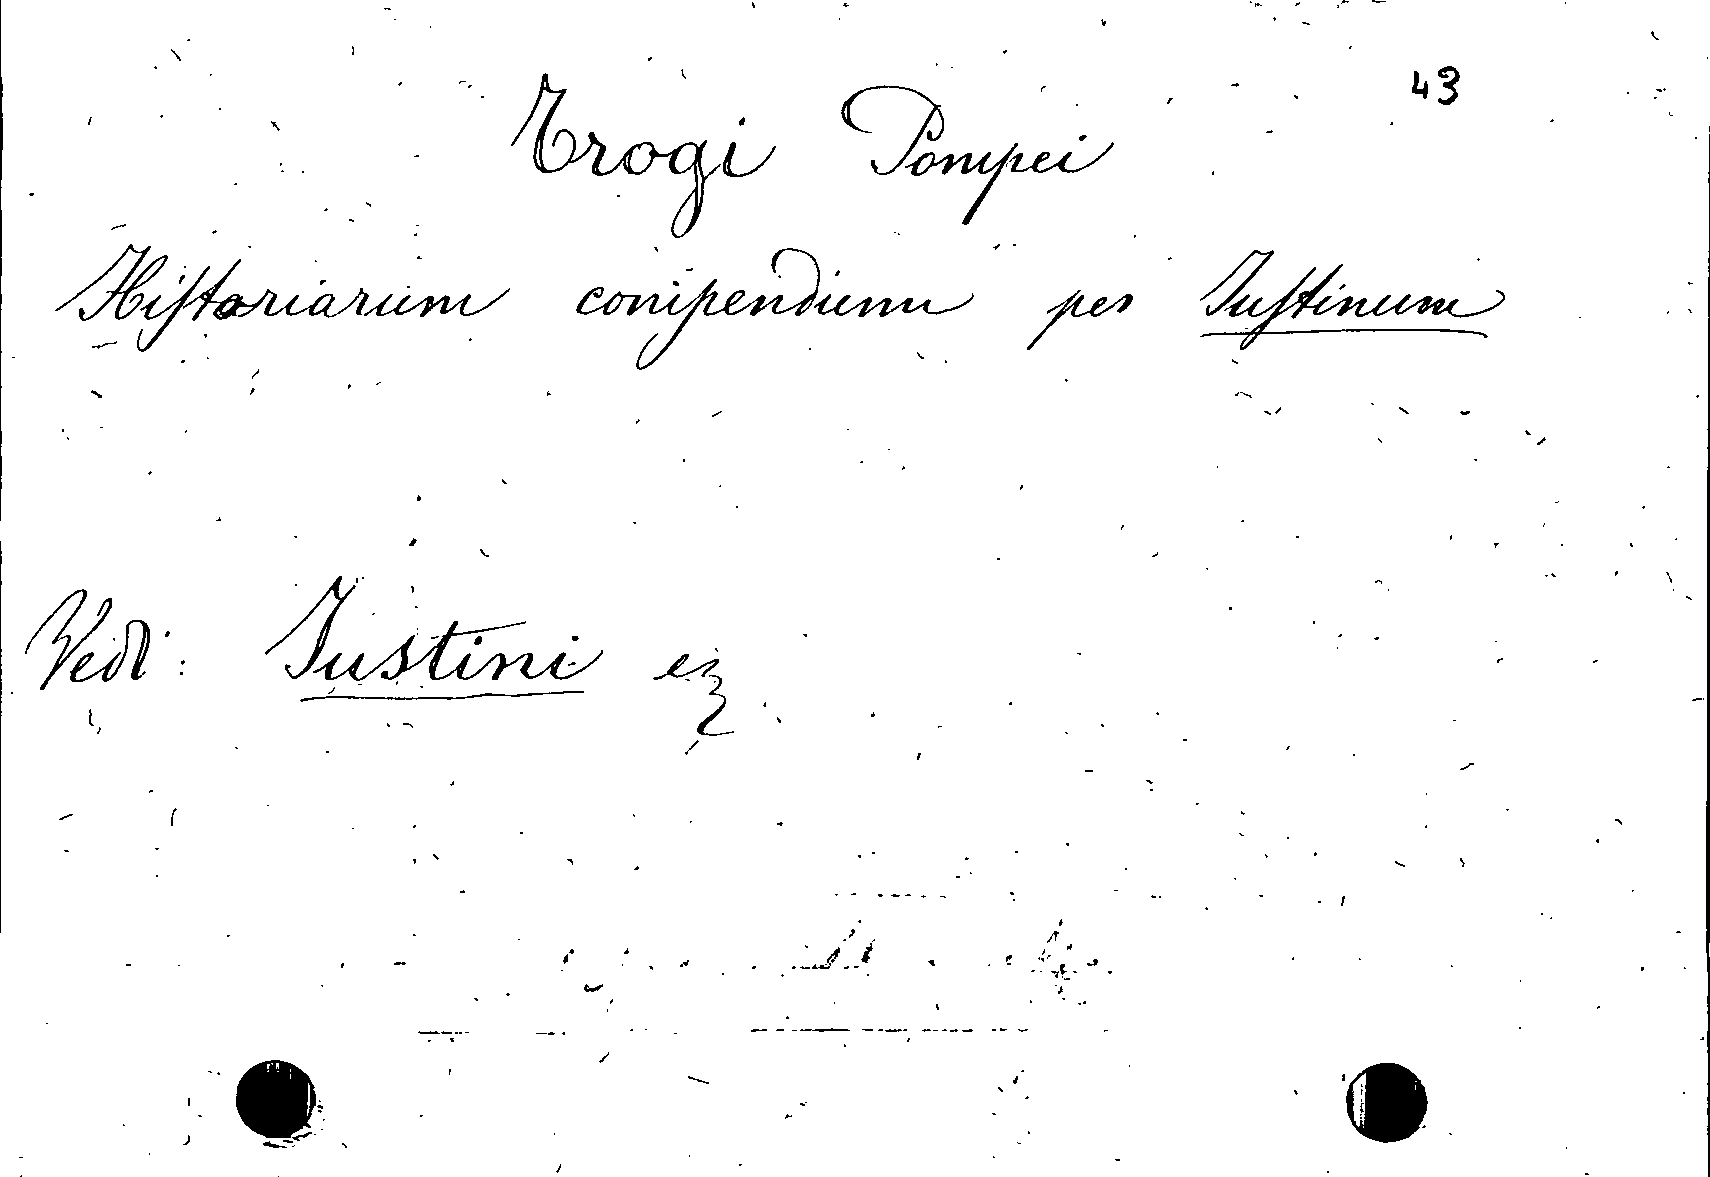 43
Trogi Pompei
Historiarum compendium per Iustinum
Vedi: Iustini ex